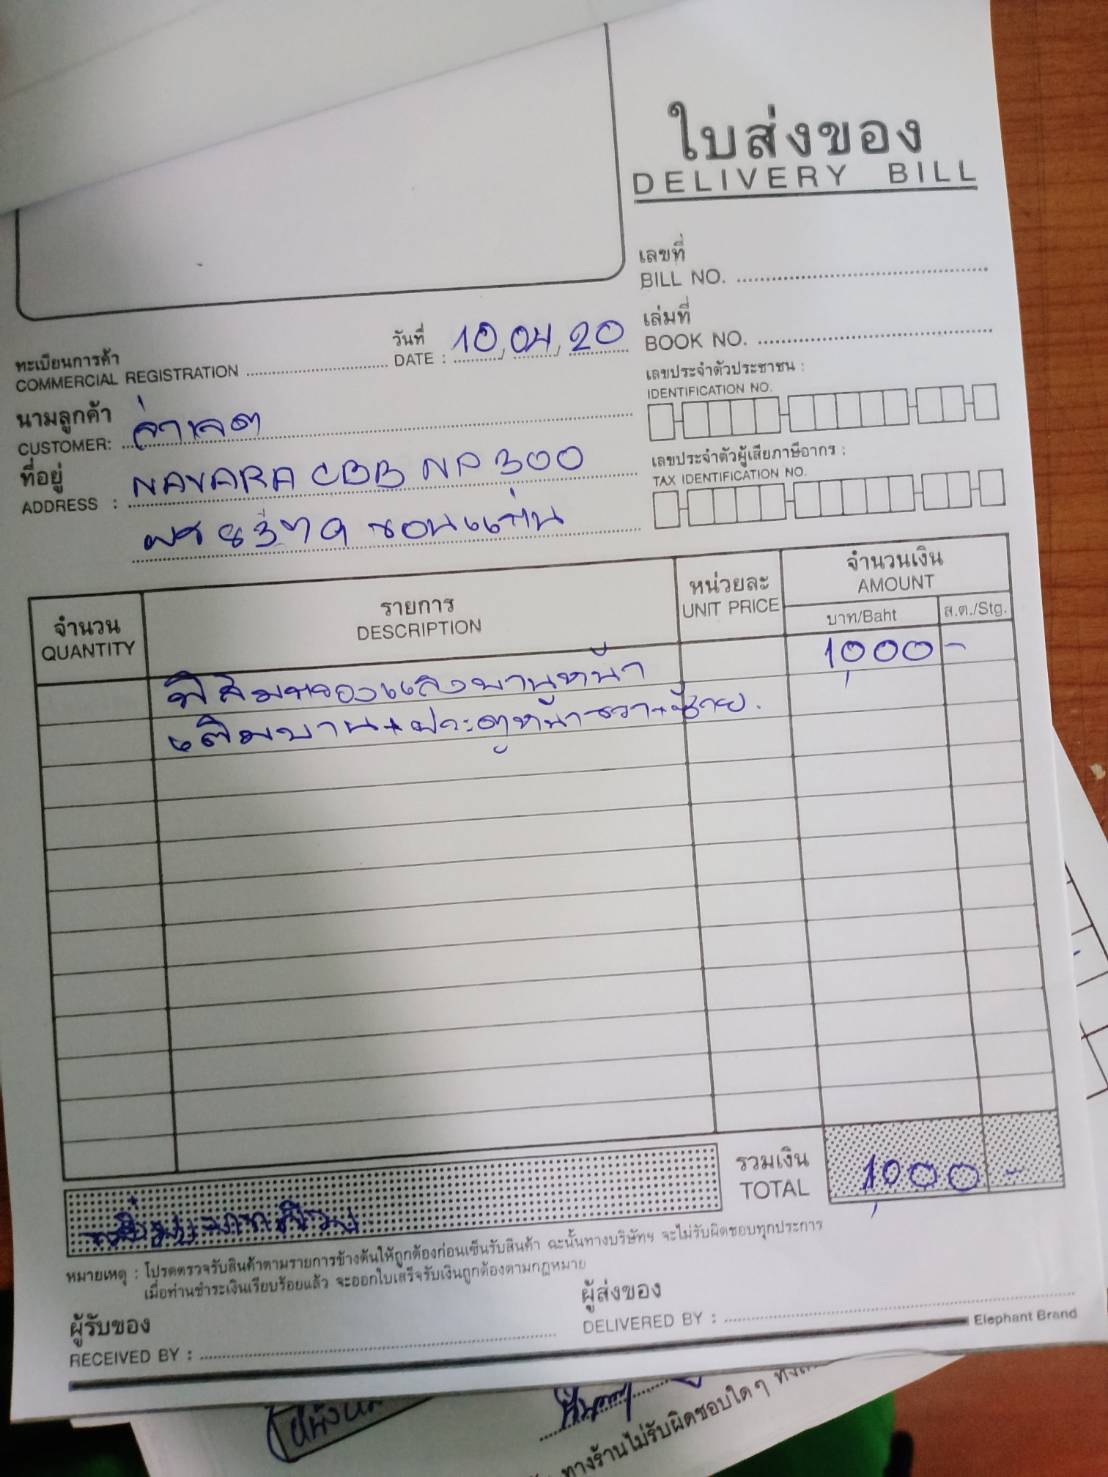 ใบส่งของ
DELIVERY BILL
เลขที่
BILL NO.
วันที่
DATE : 10, 04, 20
เล่มที่
BOOK NO.
ทะเบียนการค้า
COMMERCIAL REGISTRATION
เลขประจำตัวประชาชน :
IDENTIFICATION NO.
นามลูกค้า
CUSTOMER: จ่าเจต
ที่อยู่
ADDRESS : NAVARA CBB NP 300
เลขประจำตัวผู้เสียภาษีอากร :
TAX IDENTIFICATION NO.
ขอนแก่น
จำนวน
QUANTITY
รายการ
DESCRIPTION
หน่วยละ
UNIT PRICE
จำนวนเงิน
AMOUNT
บาท/Baht
ส.ต./Stg.
ฟิล์มกรองแสงบานหน้า 1,000 -
เต็มบาน+ประตูหน้าขวา+ซ้าย.
รวมเงิน
TOTAL
1,000 -
หนึ่งพันบาทถ้วน
หมายเหตุ : โปรดตรวจรับสินค้าตามรายการข้างต้นให้ถูกต้องก่อนเซ็นรับสินค้า ฉะนั้นทางบริษัทฯ จะไม่รับผิดชอบทุกประการ
เมื่อท่านชำระเงินเรียบร้อยแล้ว จะออกใบเสร็จรับเงินถูกต้องตามกฎหมาย
ผู้รับของ
RECEIVED BY :
ผู้ส่งของ
DELIVERED BY :
Elephant Brand
ทางร้านไม่รับผิดชอบใดๆ